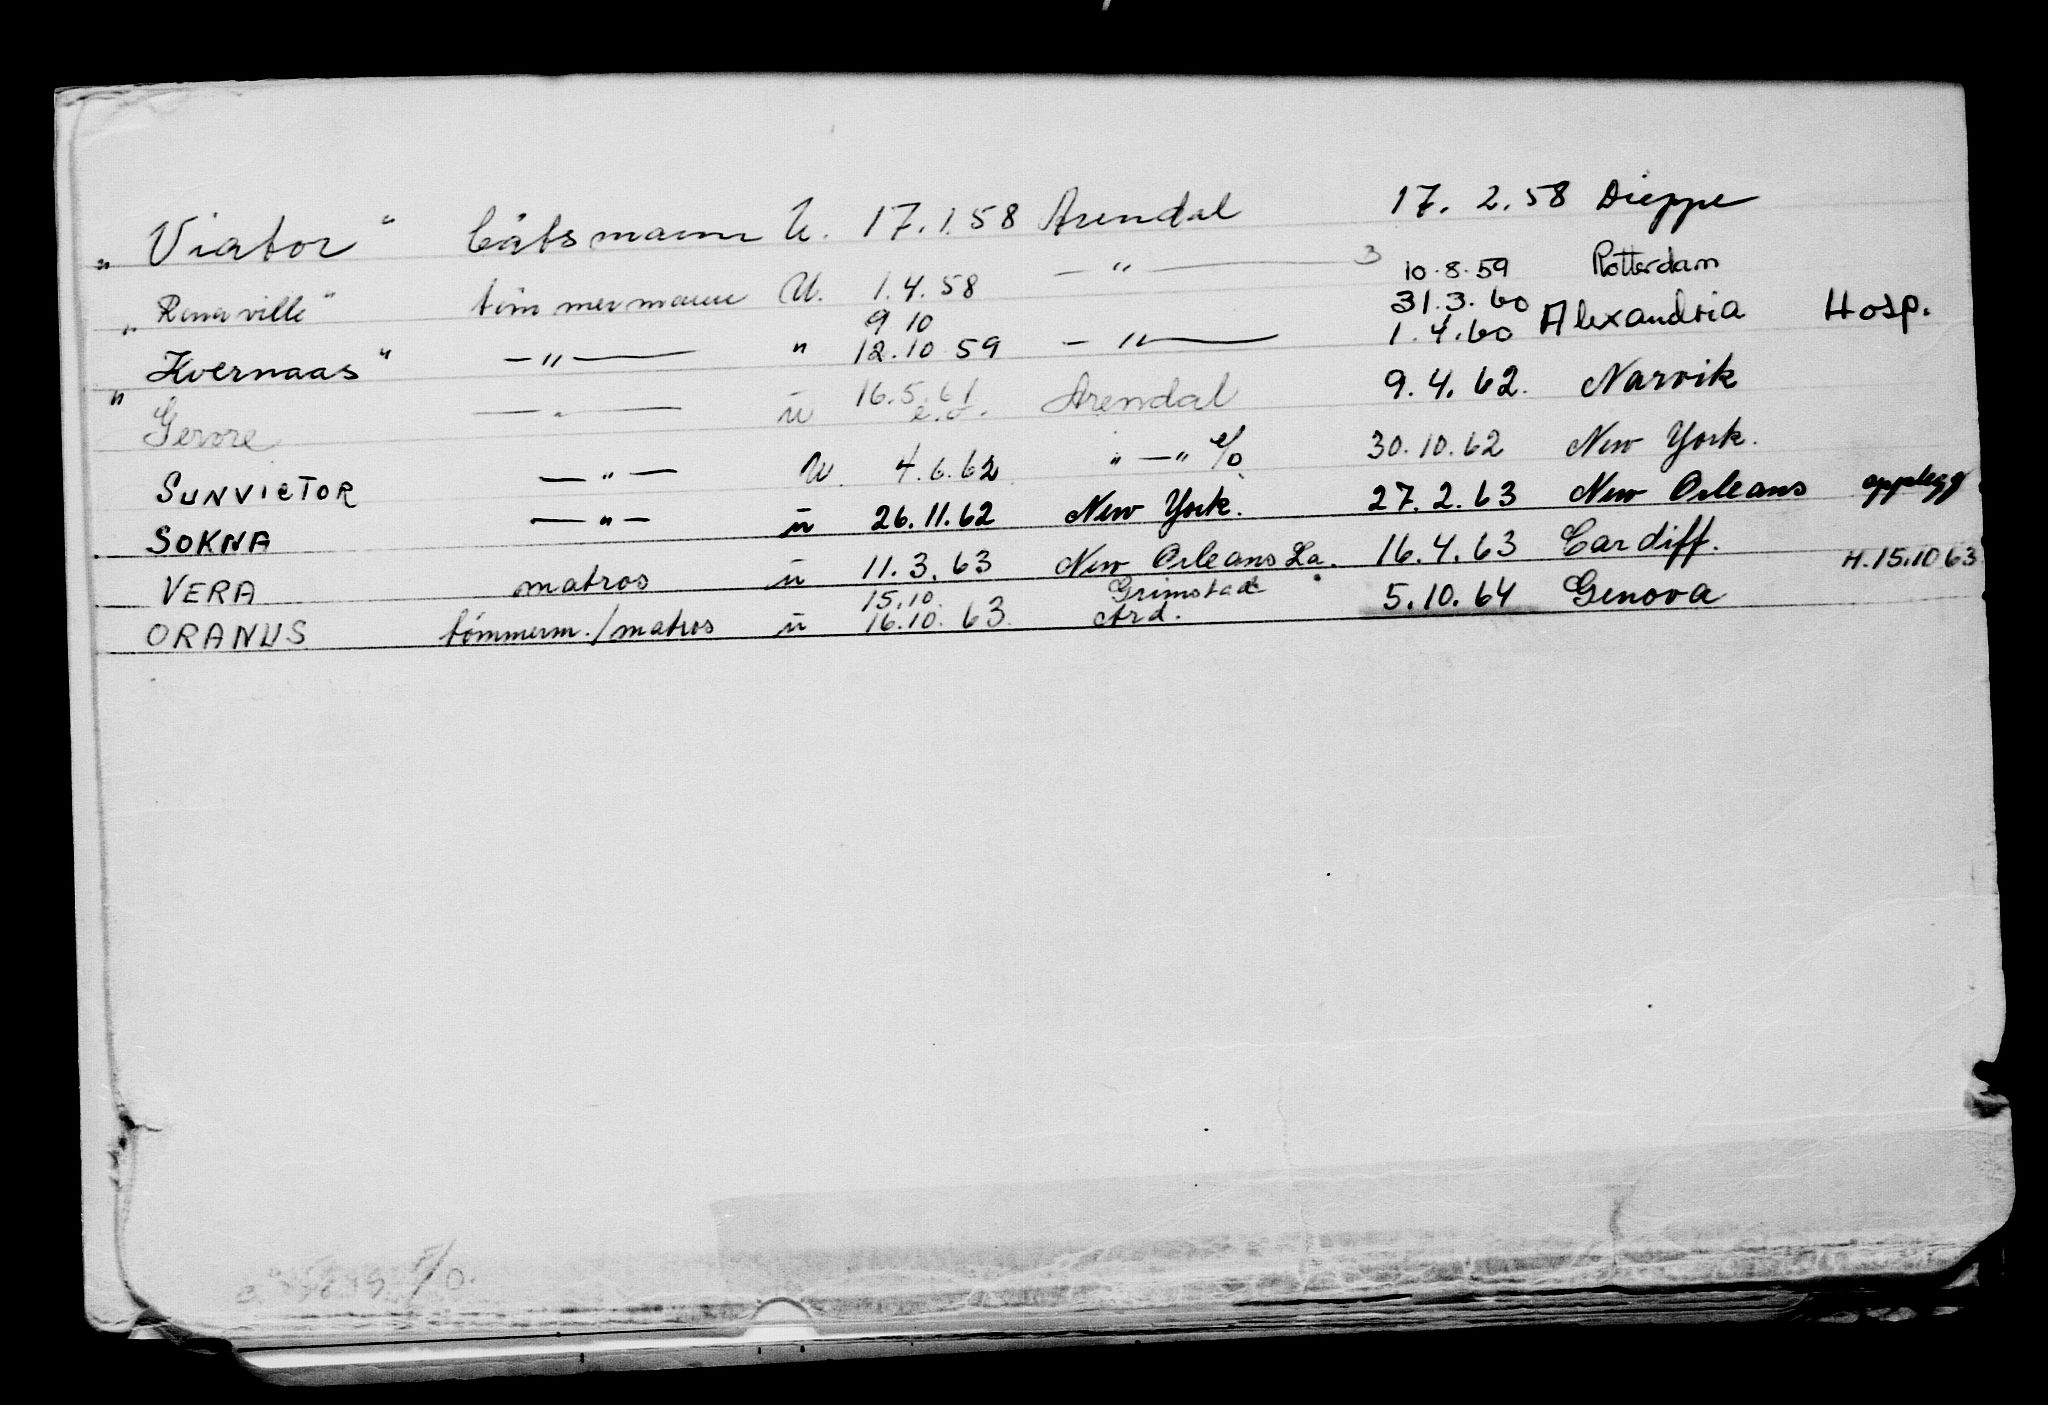 „ Viator " båtsmann U. 17.1.58 Arendal 17. 2.58 Dieppe
„ Rona ville " tømmermann U. 1.4.58 — " — 3 10.8.59 Rotterdam
„ Kvernaas " — " — " 9 10 12.10 59 — " — 31.3.60 1.4.60 Alexandria Hosp.
Gerore — " — u 16.5.61 e.o. Arendal 9.4.62. Narvik
SUNVICTOR — " — U. 4.6.62 " — " e/o 30.10.62 New York.
SOKNA — " — u 26.11.62 New York. 27.2.63 New Orleans opplegg
VERA matros u 11.3.63 New Orleans La. 16.4.63 Cardiff. H.15.10 63
ORANUS tömmerm./matros u 15.10. 16.10. 63. Grimstad Ard. 5.10.64 Genova